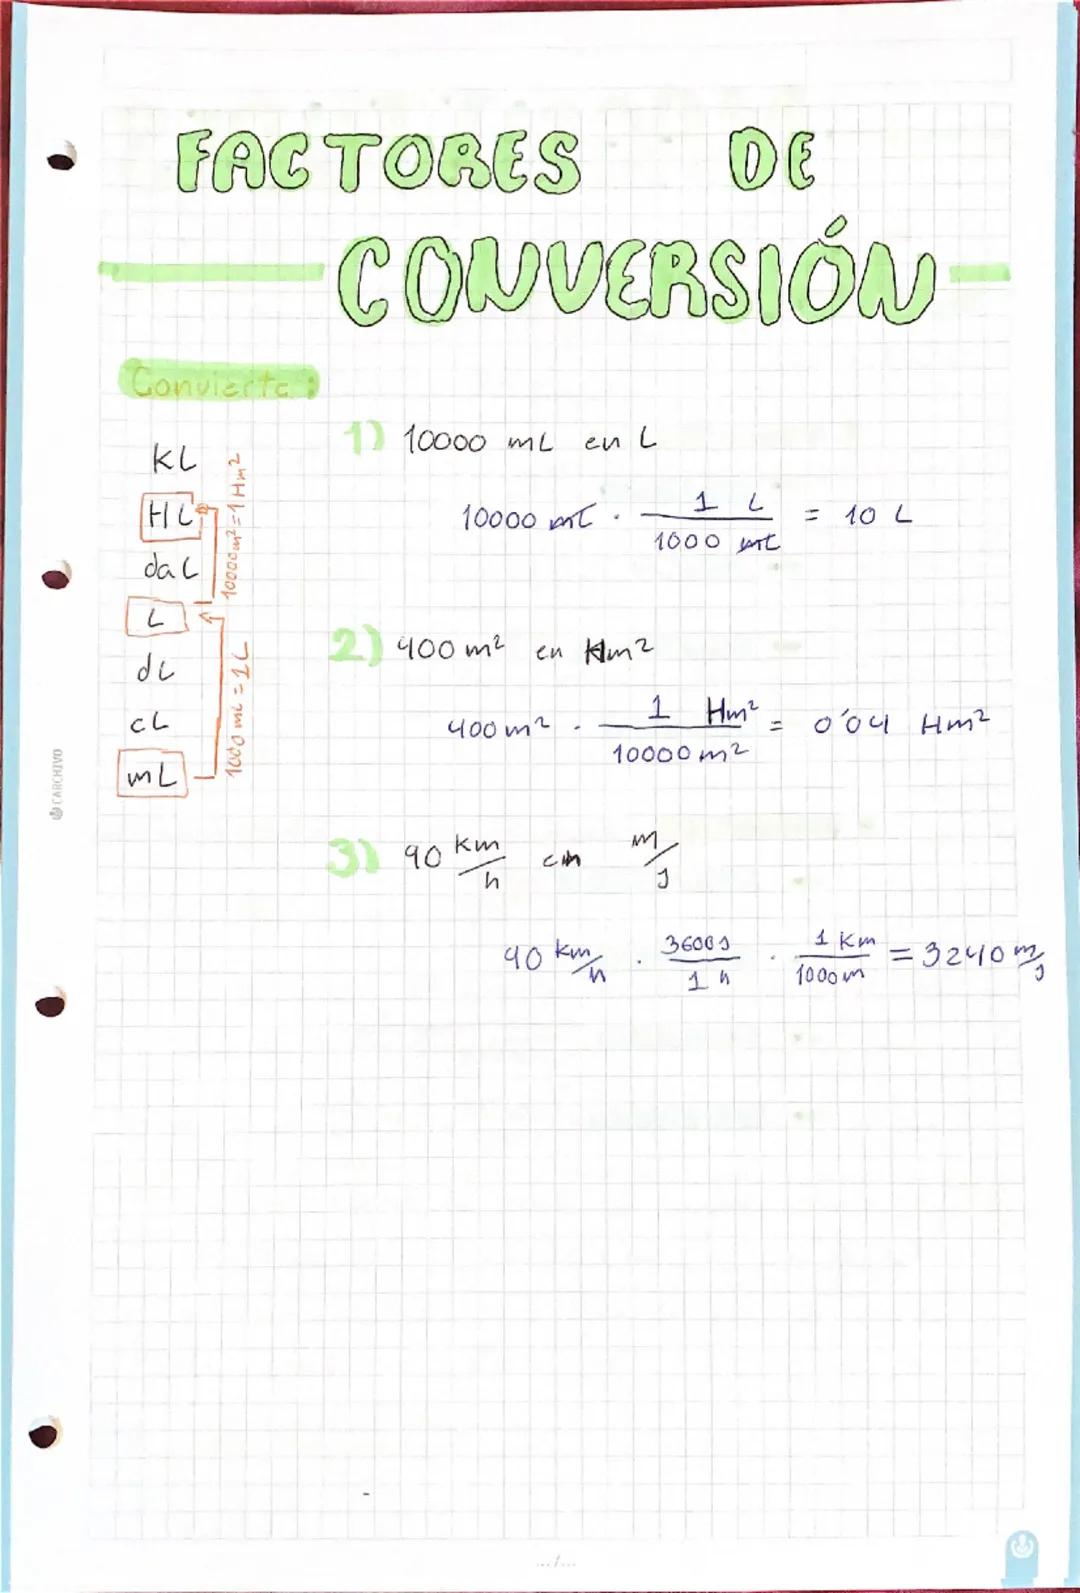 FACTORES DE
CONVERSIÓN
Convierte:
KL
HL
daL
L
dL
cL
mL
10000m²=1Hm²
1000 mL = 1L
1) 10000 mL en L
10000 mL · 1 L / 1000 mL = 10 L
2) 400 m² en Hm²
400 m² · 1 Hm² / 10000 m² = 0'04 Hm²
3) 90 km/h en m/s
90 km/h · 3600 s / 1 h · 1 Km / 1000 m = 3240 m/s
CARCHIVO